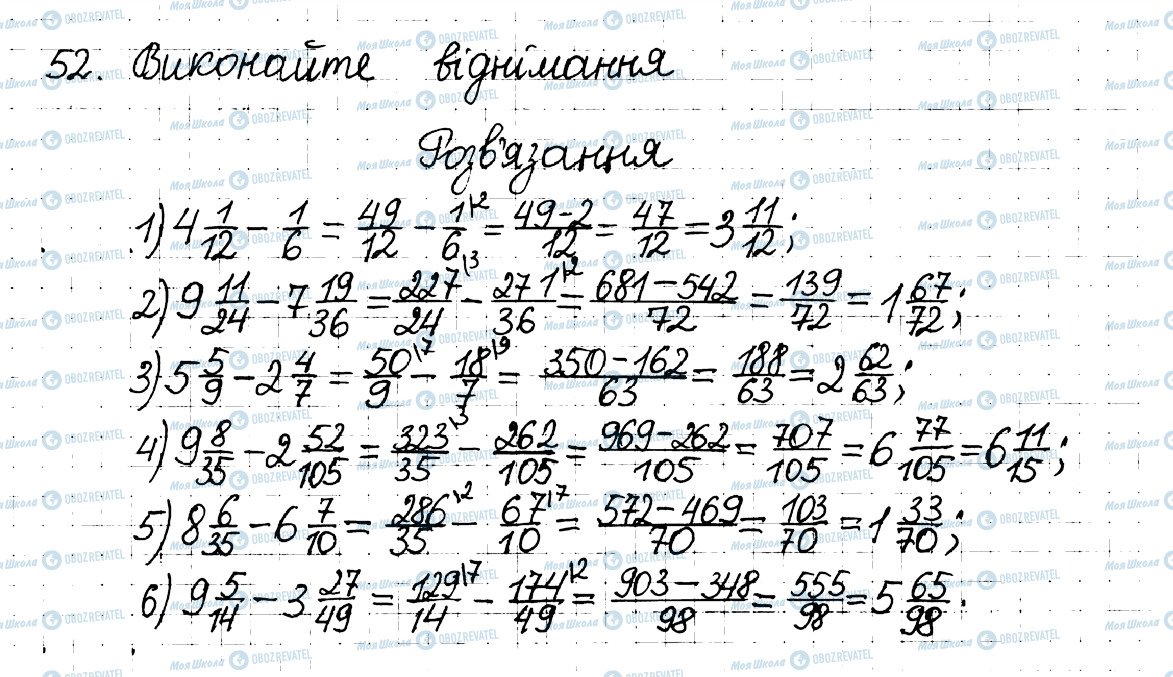 52. Виконайте віднімання
Розв'язання
1) 4 1/12 - 1/6 = 49/12 - 1/6 \2 = (49-2)/12 = 47/12 = 3 11/12;
2) 9 11/24 - 7 19/36 = 227/24 \3 - 271/36 \2 = (681-542)/72 = 139/72 = 1 67/72;
3) 5 5/9 - 2 4/7 = 50/9 \7 - 18/7 \9 = (350-162)/63 = 188/63 = 2 62/63;
4) 9 8/35 - 2 52/105 = 323/35 \3 - 262/105 = (969-262)/105 = 707/105 = 6 77/105 = 6 11/15;
5) 8 6/35 - 6 7/10 = 286/35 \2 - 67/10 \7 = (572-469)/70 = 103/70 = 1 33/70;
6) 9 5/14 - 3 27/49 = 129/14 \7 - 174/49 \2 = (903-348)/98 = 555/98 = 5 65/98.
Моя Школа OBOZREVATEL